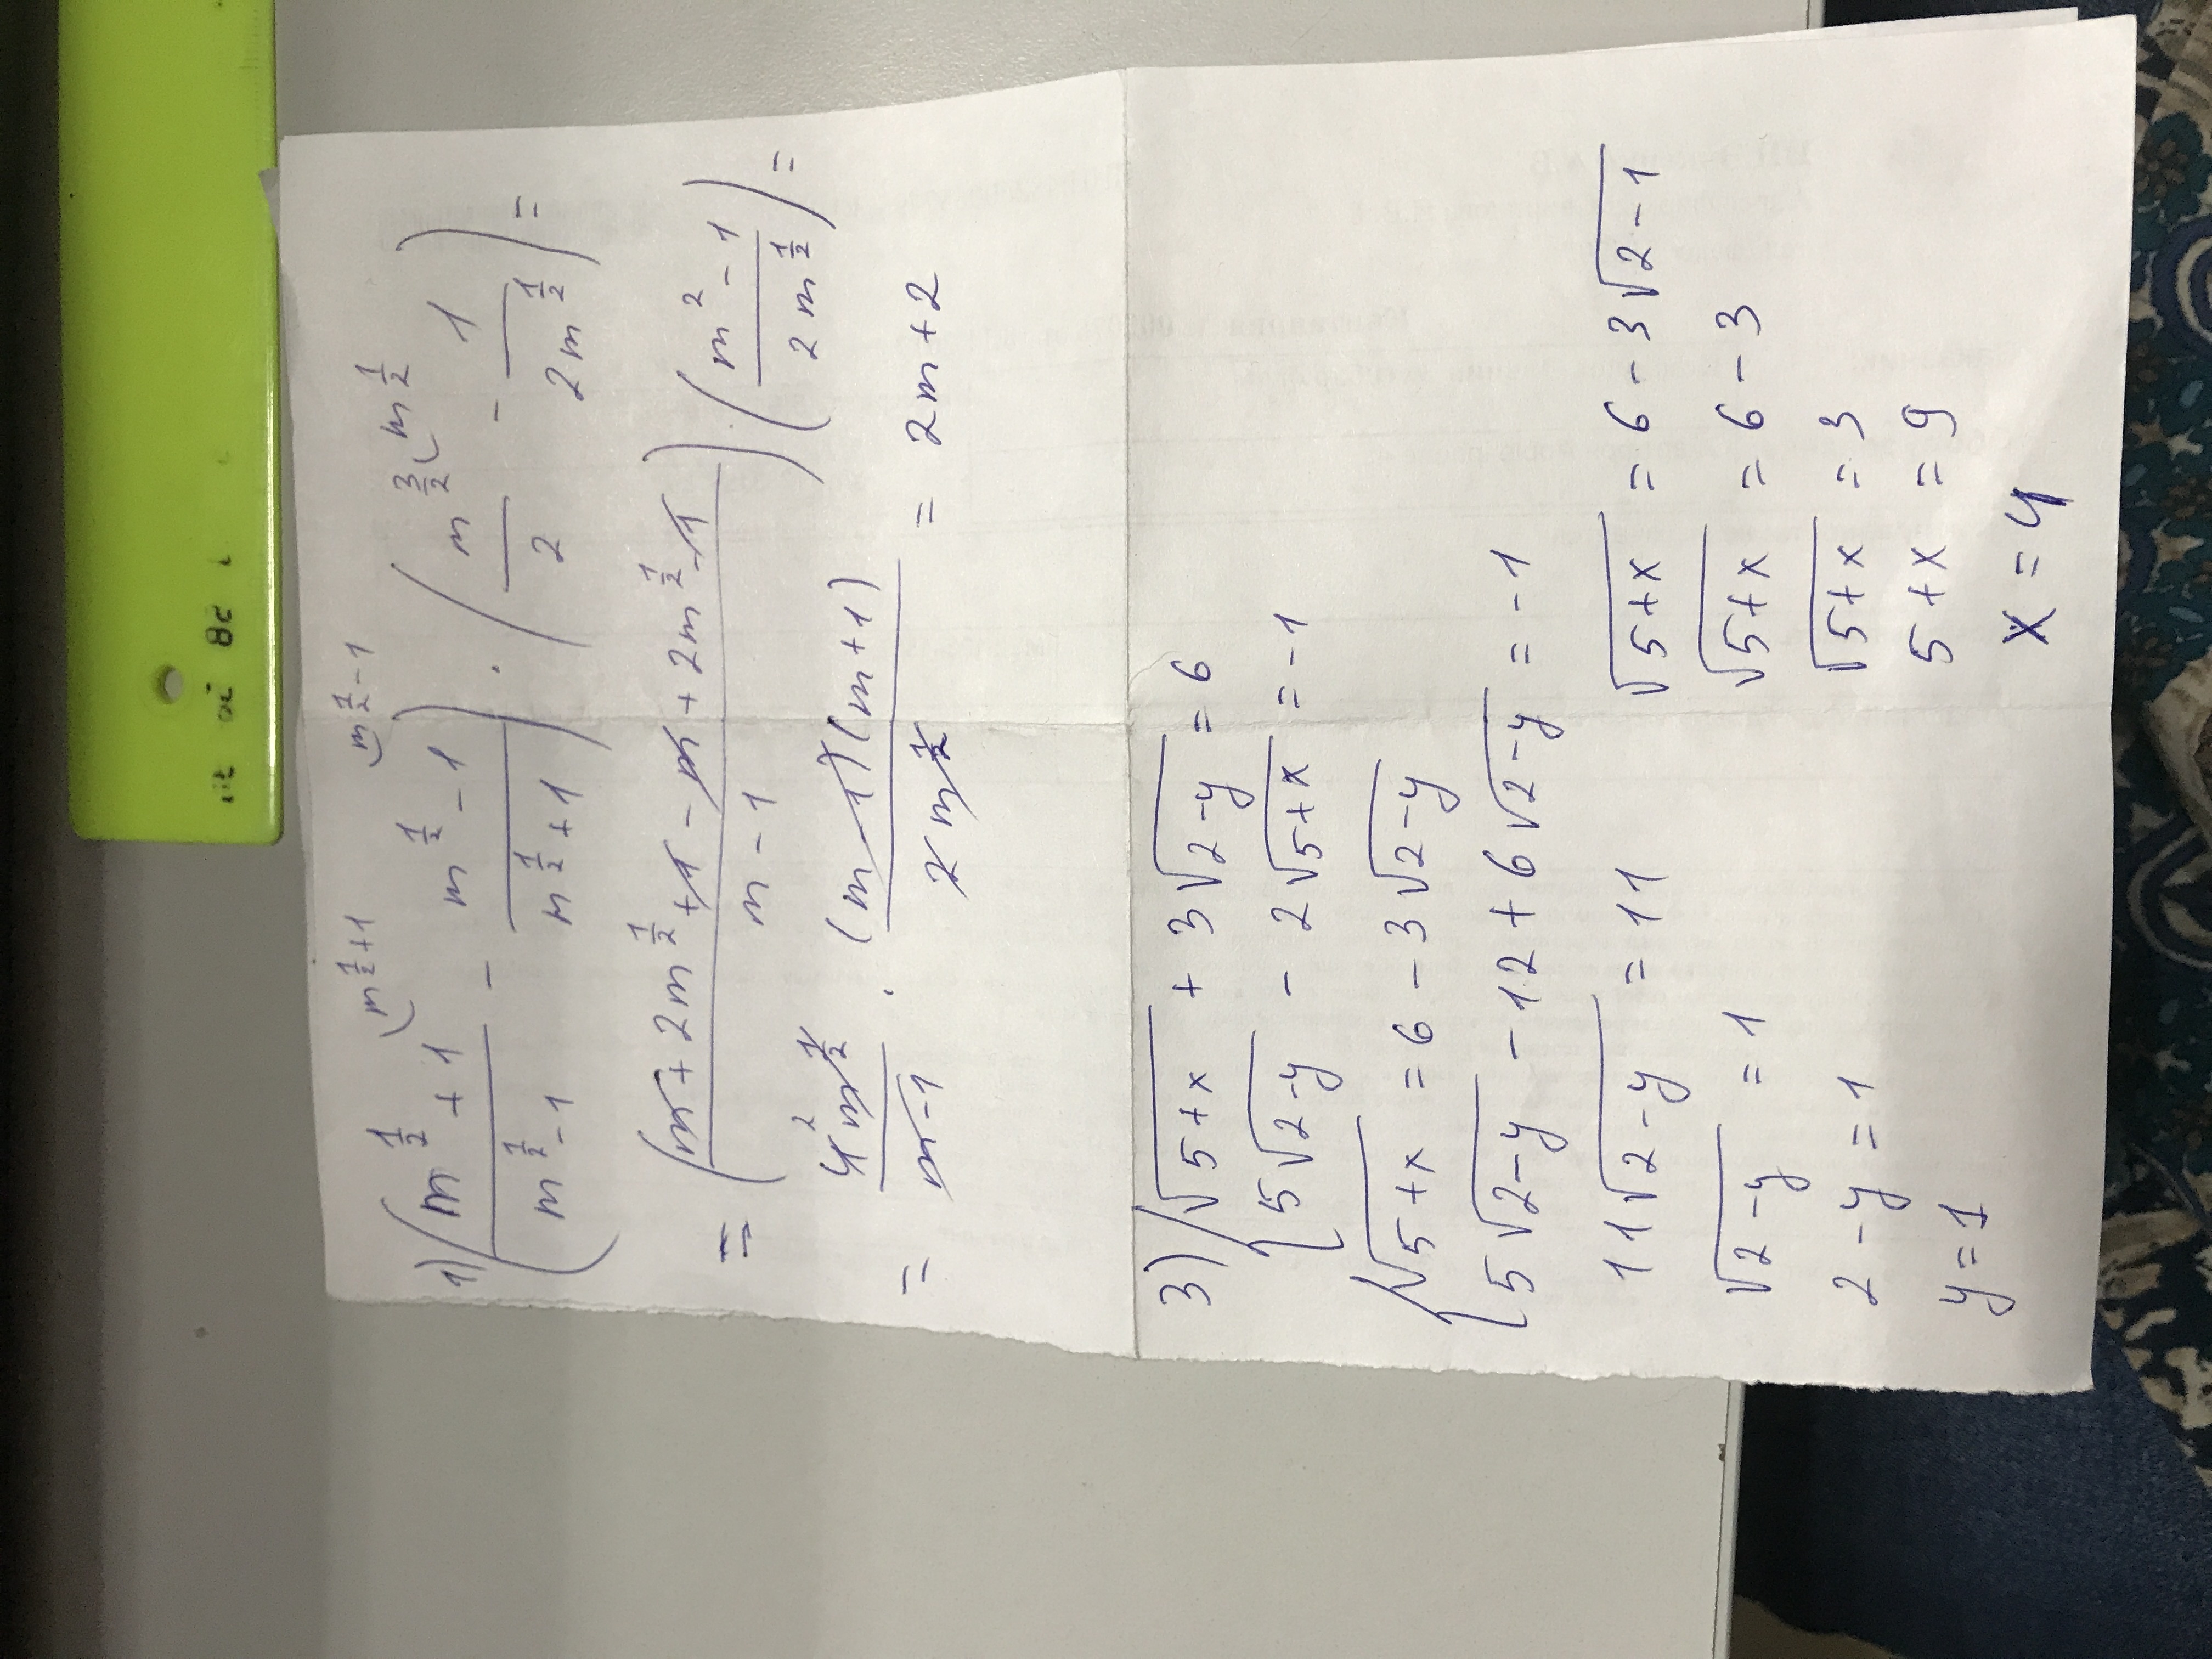 1) ((m^(1/2) + 1)/(m^(1/2) - 1) (m^(1/2) + 1 - (m^(1/2) - 1)/(m^(1/2) + 1) (m^(1/2) - 1) · (m^(3/2)/2 (m^(1/2) - 1/(2m^(1/2))) =
= ((m + 2m^(1/2) + 1 - m + 2m^(1/2) - 1)/(m - 1)) · ((m^2 - 1)/(2m^(1/2))) =
= 4m^(1/2)/(m - 1) 2 · (m - 1)(m + 1)/(2m^(1/2)) = 2m + 2
3) { √(5+x) + 3√(2-y) = 6
5√(2-y) - 2√(5+x) = -1
{ √(5+x) = 6 - 3√(2-y)
5√(2-y) - 12 + 6√(2-y) = -1
11√(2-y) = 11
√(2-y) = 1
2 - y = 1
y = 1
√(5+x) = 6 - 3√(2-1)
√(5+x) = 6 - 3
√(5+x) = 3
5 + x = 9
x = 4